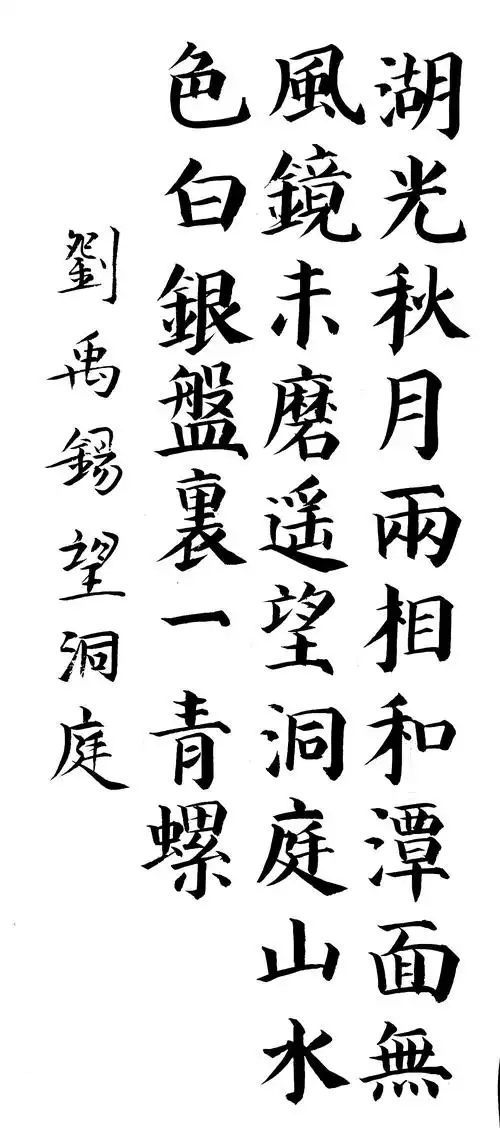 湖光秋月兩相和潭面無
風鏡未磨遥望洞庭山水
色白銀盤裏一青螺
劉禹錫望洞庭